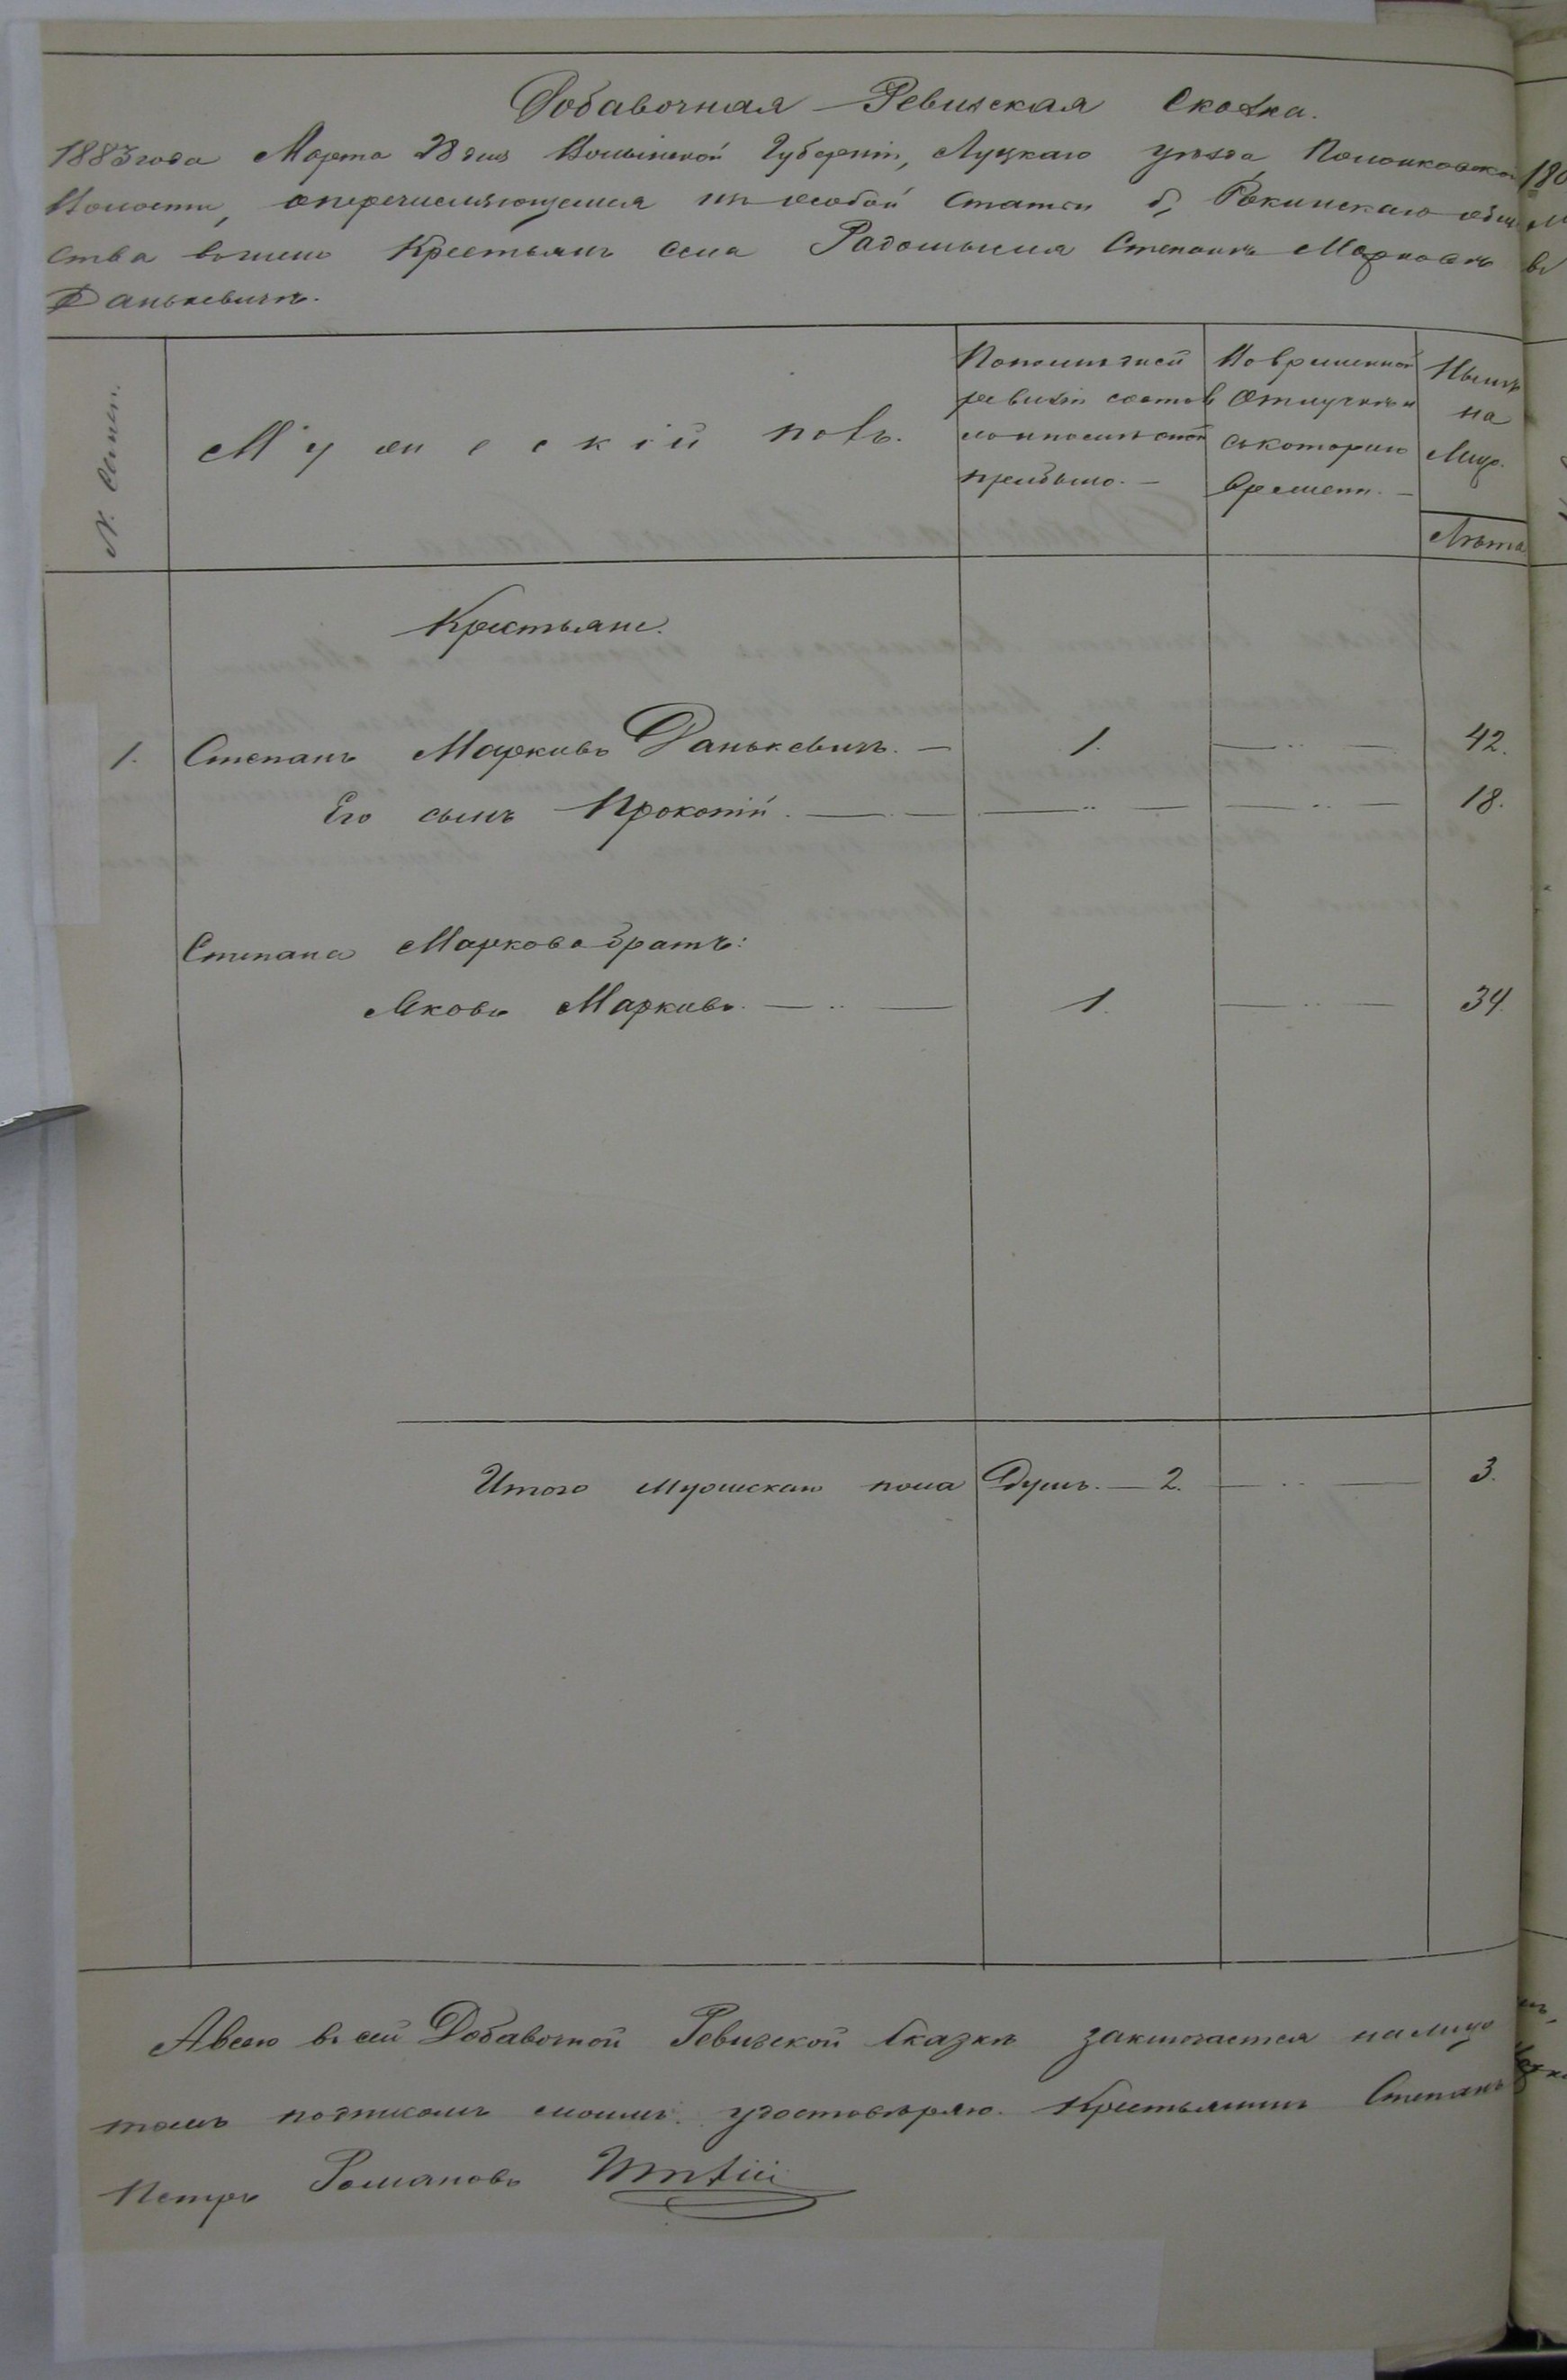 Добавочная Ревизская Сказка.
1883 года Марта 28 дня Волынской Губерніи, Луцкаго уѣзда, Полонковской
Волости, о перечисляющемся по особой статьи д, Рокинскаго обще
ства въ число Крестьянъ села Радомышля Степанъ Марковъ
Данькевичъ.
№ Семей.
Мужескій полъ.
По послѣдней
ревизіи состоя
ло и послѣ оной
прибыло. —
Во временной
отлучкѣ и
съ котораго
времени. —
Нынѣ
на
Лицо.
Лѣта.
Крестьяне.
1. Степанъ Марковъ Данькевичъ. — 1. — 42.
Его сынъ Прокопій. — — — 18.
Степана Маркова братъ:
Яковъ Марковъ. — 1. — 34.
Итого мужескаго пола Душъ. — 2. — 3.
А всего въ сей Добавочной Ревизской Сказкѣ заключается на лицо
томъ подписомъ моимъ удостовѣряю. Крестьянинъ Степанъ
Петръ Романовъ